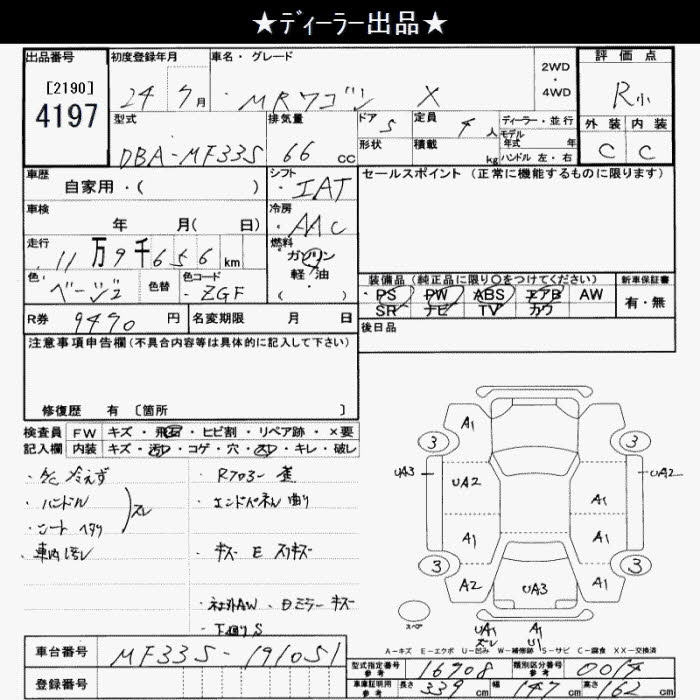 ★ディーラー出品★
出品番号 初度登録年月 車名・グレード 2WD・4WD 評価点
[2190]
4197
24 7月 MRワゴン X R小
型式 排気量 ドア 5 定員 4人 ディーラー・並行 外装 内装
DBA-MF33S 66cc 形状 積載 kg モデル年式 年 C C
ハンドル 左・右
車歴 自家用・( ) シフト IAT セールスポイント(正常に機能するものに限ります)
車検 年 月( 日) 冷房 AAC
走行 11万9千656km 燃料 ガソリン
軽油
( )
色 ベージュ 色替 色コード ZGF
装備品(純正品に限り○をつけてください) 新車保証書
PS PW ABS エアB AW 有・無
SR ナビ TV カワ
R券 9490円 名変期限 月 日
後日品
注意事項申告欄(不具合内容等は具体的に記入して下さい)
修復歴 有 [箇所 ]
検査員 FW キズ・飛石・ヒビ割・リペア跡・×要
記入欄 内装 キズ・汚れ・コゲ・穴・スレ・キレ・破レ
・A/C 冷えず
・ハンドル
・シート ヘタリ
スレ
・車内汚レ
・Rフロアー
・エンドパネル 曲り
・キズ E スリキズ
・社外AW ・Dミラー キズ
・下廻りS
A1
3 3
UA3 UA2 UA2
A1
A1 A1
3 3
A2 UA3 A1
スペア
UA1 A1
スレ U1
A-キズ E-エクボ U-凹み W-補修跡 S-サビ C-腐食 XX-交換済
車台番号 MF33S-191051
登録番号
型式指定番号 参考 16908 類別区分番号 参考 0014
車庫証明用 参考 長さ 339cm 幅 147cm 高さ 162cm